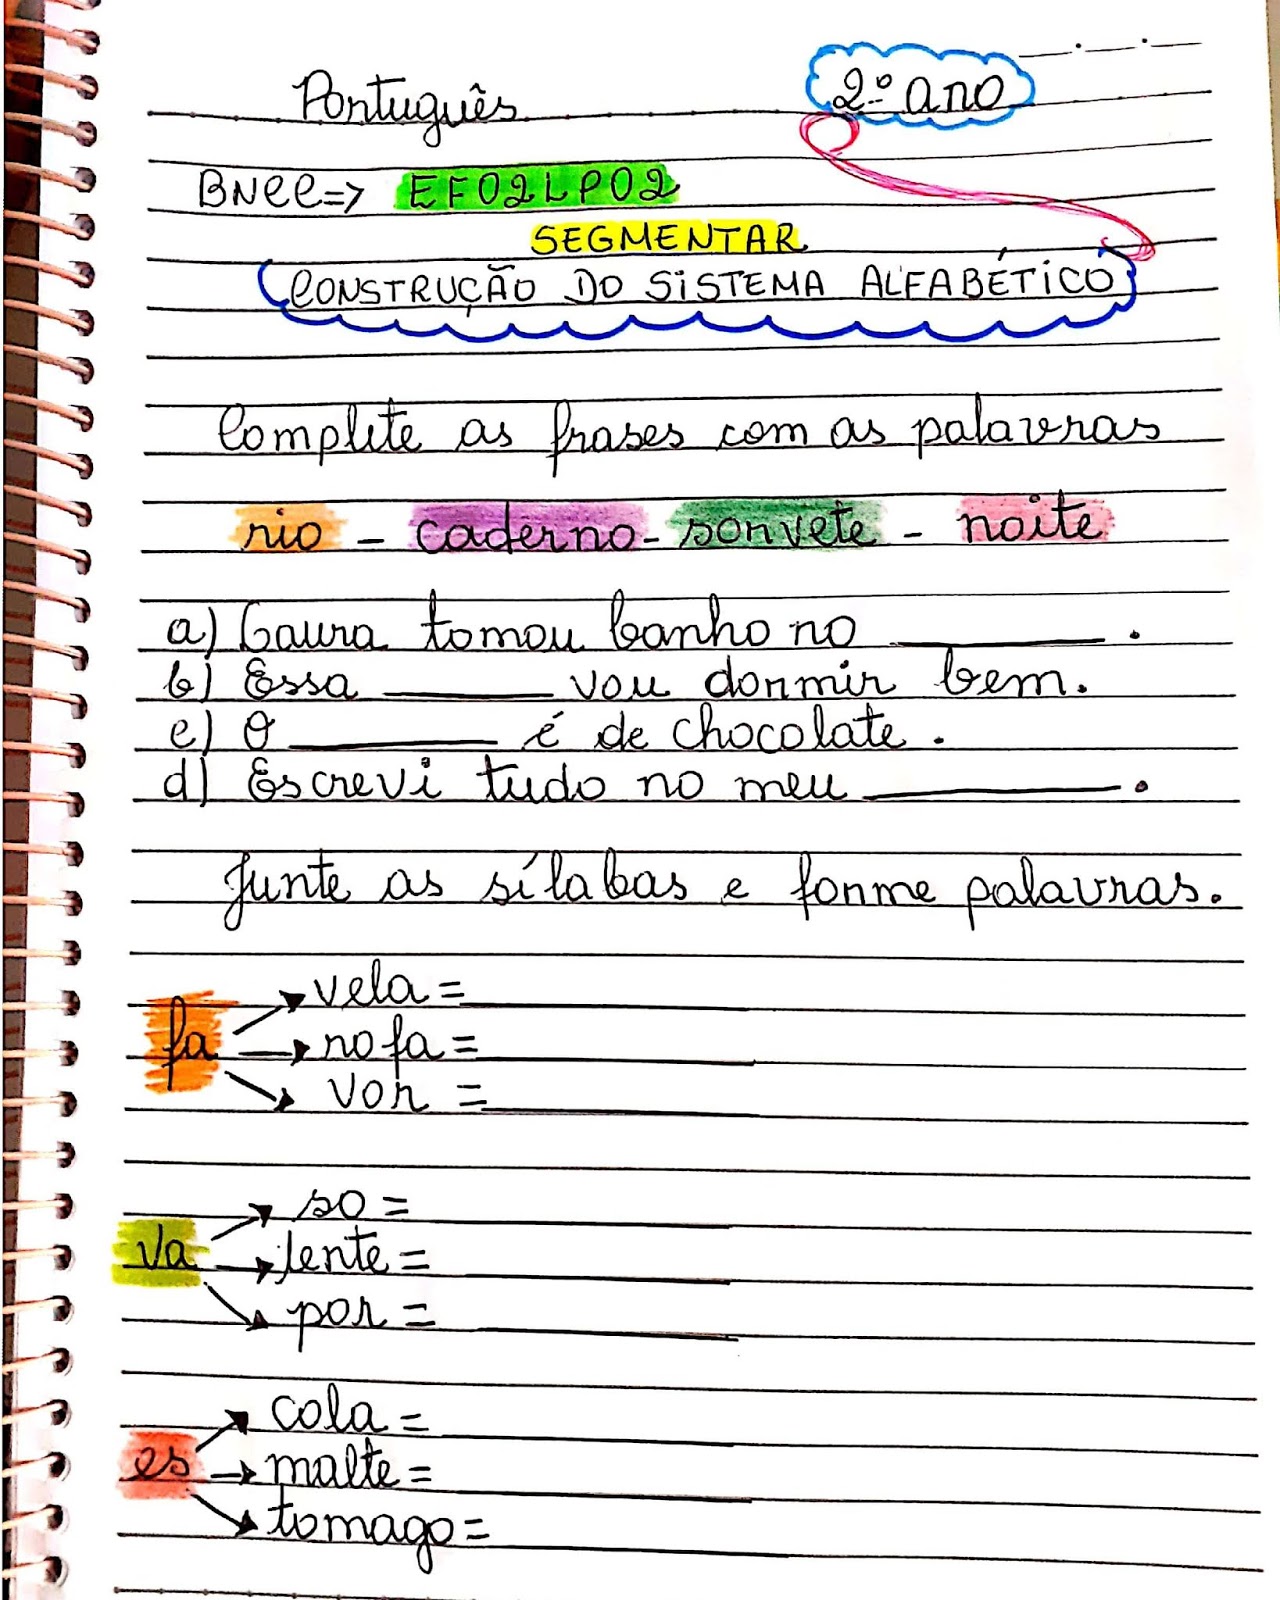 Português
2º ano
BNCC=> EF02LP02
SEGMENTAR
CONSTRUÇÃO DO SISTEMA ALFABÉTICO
Complete as frases com as palavras
rio - caderno - sorvete - noite
a) Laura tomou banho no ________ .
b) Essa ________ vou dormir bem.
c) O ________ é de chocolate.
d) Escrevi tudo no meu ________ .
Junte as sílabas e forme palavras.
vela = ________
fa rofa = ________
vor = ________
so = ________
va lente = ________
por = ________
cola = ________
es malte = ________
tomago = ________